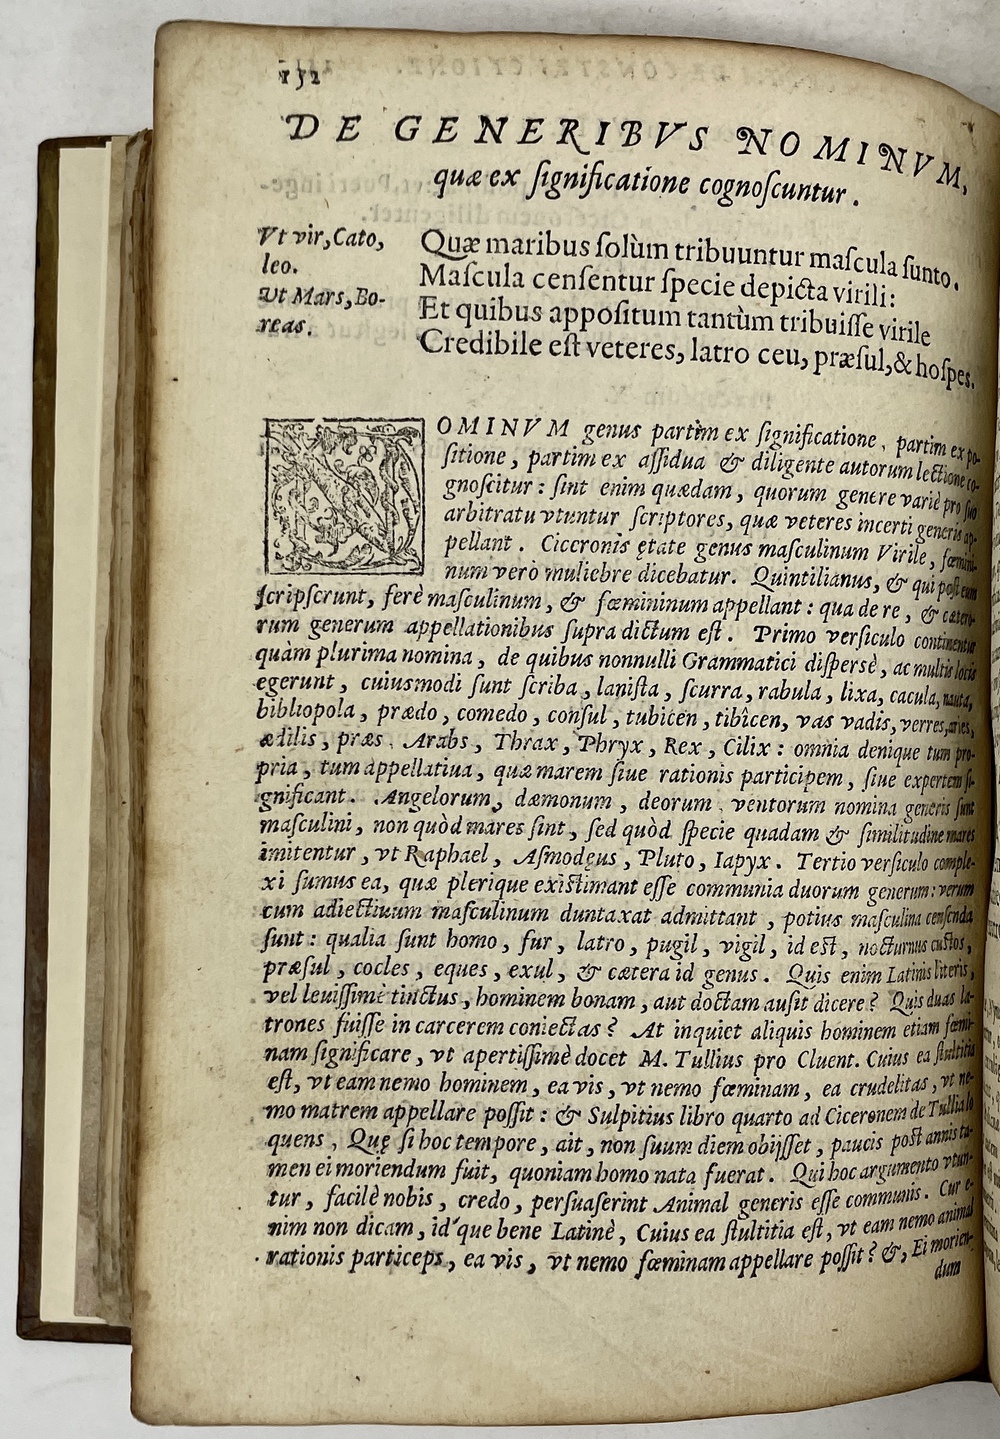 152
DE GENERIBVS NOMINVM,
quæ ex ſignificatione cognoſcuntur.
Vt vir, Cato,
leo.
vt Mars, Bo-
reas.
Quæ maribus ſolùm tribuuntur maſcula ſunto.
Maſcula cenſentur ſpecie depicta virili:
Et quibus appoſitum tantùm tribuiſſe virile
Credibile eſt veteres, latro ceu, præſul, & hoſpes.
NOMINVM genus partìm ex ſignificatione, partim ex po-
ſitione, partim ex aſſidua & diligente autorum lectione co-
gnoſcitur: ſint enim quædam, quorum genere variè pro ſuo
arbitratu vtuntur ſcriptores, quæ veteres incerti generis ap-
pellant. Ciceronis ętate genus maſculinum Virile, fœmini-
num verò muliebre dicebatur. Quintilianus, & qui poſt eum
ſcripſerunt, ferè maſculinum, & fœmininum appellant: qua de re, & cætero-
rum generum appellationibus ſupra dictum eſt. Primo verſiculo continentur
quàm plurima nomina, de quibus nonnulli Grammatici diſpersè, ac multis locis
egerunt, cuiusmodi ſunt ſcriba, laniſta, ſcurra, rabula, lixa, cacula, nauta,
bibliopola, prædo, comedo, conſul, tubicen, tibîcen, vas vadis, verres, aries,
ædilis, præs. Arabs, Thrax, Phryx, Rex, Cilix: omnia denique tum pro-
pria, tum appellatiua, quæ marem ſiue rationis participem, ſiue expertem ſi-
gnificant. Angelorum, dæmonum, deorum, ventorum nomina generis ſunt
maſculini, non quòd mares ſint, ſed quòd ſpecie quadam & ſimilitudine mares
imitentur, vt Raphael, Aſmodęus, Pluto, Iapyx. Tertio verſiculo comple-
xi ſumus ea, quæ plerique exiſtimant eſſe communia duorum generum: verum
cum adiectiuum maſculinum duntaxat admittant, potius maſculina cenſenda
ſunt: qualia ſunt homo, fur, latro, pugil, vigil, id eſt, nocturnus cuſtos,
præſul, cocles, eques, exul, & cætera id genus. Quis enim Latinis literis,
vel leuiſſimè tinctus, hominem bonam, aut doctam auſit dicere? Quis duas la-
trones fuiſſe in carcerem coniectas? At inquiet aliquis hominem etiam fœmi-
nam ſignificare, vt apertiſſimè docet M. Tullius pro Cluent. Cuius ea ſtultitia
eſt, vt eam nemo hominem, ea vis, vt nemo fœminam, ea crudelitas, vt ne-
mo matrem appellare poſſit: & Sulpitius libro quarto ad Ciceronem de Tullia lo
quens, Quę ſi hoc tempore, ait, non ſuum diem obijſſet, paucis poſt annis ta-
men ei moriendum fuit, quoniam homo nata fuerat. Qui hoc argumento vtun-
tur, facilè nobis, credo, perſuaſerint Animal generis eſſe communis. Cur e-
nim non dicam, id que bene Latinè, Cuius ea ſtultitia eſt, vt eam nemo animal
rationis particeps, ea vis, vt nemo fœminam appellare poſſit? &, Ei morien-
dum